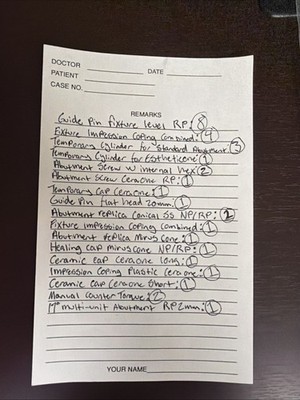 DOCTOR
DATE
PATIENT
CASE NO.
REMARKS
Guide Pin fixture level RP: 8
Fixture Impression Coping Combined: 4
Temporary Cylinder for Standard Abutment 3
Temporary Cylinder for Estheticone: 1
Abutment Screw w internal hex: 2
Abutment Screw Ceraone RP: 1
Temporary Cap Ceraone: 1
Guide Pin flat head 20mm: 1
Abutment replica Conical SS NP/RP: 2
Fixture Impression Coping Combined: 1
Abutment replica Miruscone: 1
Healing cap miruscone NP/RP: 1
Ceramic cap ceraone long: 1
Impression Coping Plastic Ceraone: 1
Ceramic cap Ceraone Short: 1
Manual Counter Torque: 2
multi-unit Abutment RP 2mm: 1
YOUR NAME